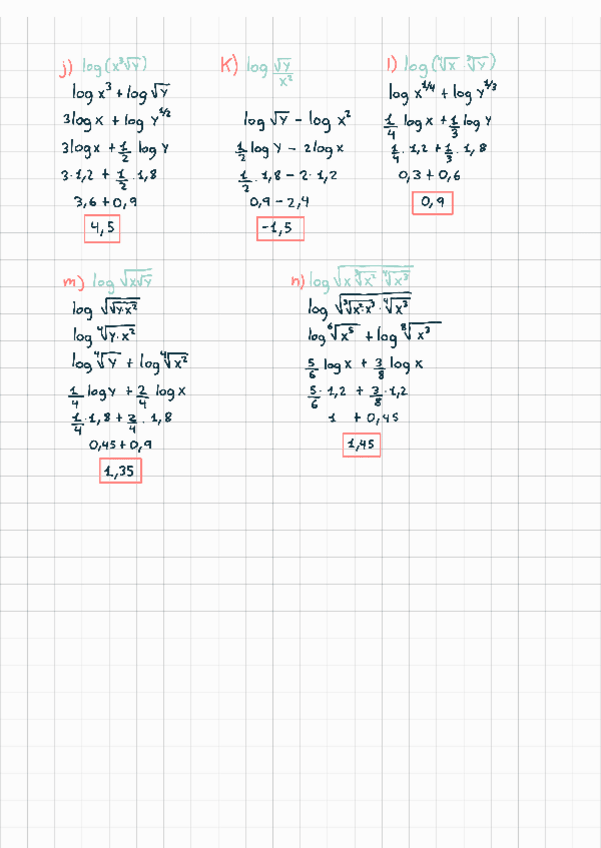 j) log(x³√y)
log x³ + log √y
3log x + log y^1/2
3log x + 1/2 log y
3·1,2 + 1/2·1,8
3,6 + 0,9
4,5
K) log √y/x²
log √y − log x²
1/2 log y − 2log x
1/2·1,8 − 2·1,2
0,9 − 2,4
−1,5
l) log(∜x ∛y)
log x^1/4 + log y^1/3
1/4 log x + 1/3 log y
1/4·1,2 + 1/3·1,8
0,3 + 0,6
0,9
m) log √(x√y)
log √(√(y·x²))
log ∜(y·x²)
log ∜y + log ∜x²
1/4 log y + 2/4 log x
1/4·1,8 + 2/4·1,8
0,45 + 0,9
1,35
n) log √(x ∛x² ∜x³)
log √(∛(x²·x³) · ∜x³)
log ⁶√x⁵ + log ⁸√x³
5/6 log x + 3/8 log x
5/6·1,2 + 3/8·1,2
1 + 0,45
1,45